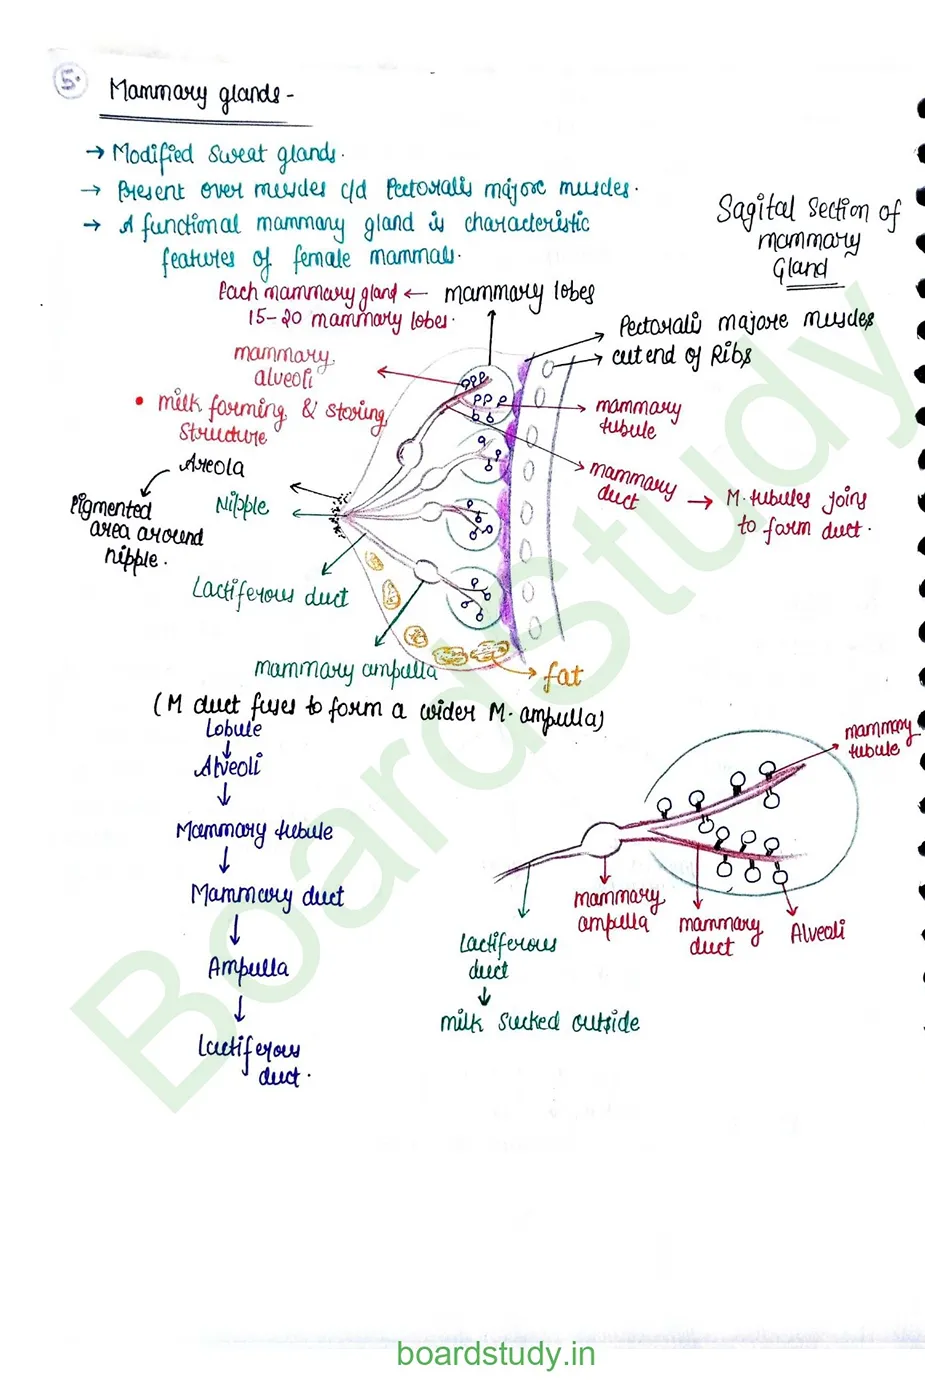 5.
Mammary glands -
→ Modified sweat glands.
→ Present over muscles c/d Pectoralis majore muscles.
→ A functional mammary gland is characteristic
features of female mammals.
Sagital Section of
mammary
Gland
Each mammary gland ← mammary lobes
15-20 mammary lobes.
Pectorali majore muscles
cut end of Ribs
mammary
alveoli
• milk forming & storing
structure
mammary
tubule
Areola
Nipple
Pigmented
area around
nipple.
mammary
duct → M. tubules joins
to form duct.
Lactiferous duct
mammary ampulla
fat
(M duct fuses to form a wider M. ampulla)
Lobule
↓
Alveoli
↓
Mammary tubule
↓
Mammary duct
↓
Ampulla
↓
Lactiferous
duct.
mammary
tubule
mammary
ampulla
mammary
duct
Alveoli
Lactiferous
duct
↓
milk sucked outside
Boardstudy
boardstudy.in